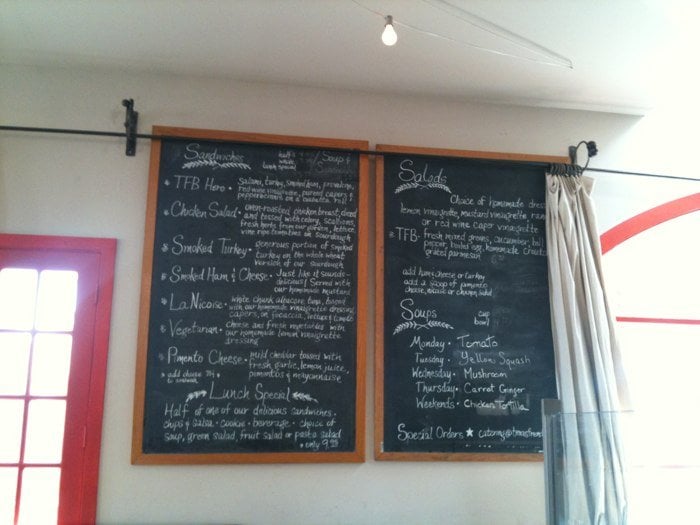 Sandwiches half whole Soup &
lunch special Sandwich
TFB Hero • salami, turkey, smoked ham, provolone,
red wine vinaigrette, pureed capers &
pepperoncini on a ciabatta roll
Chicken Salad • oven-roasted chicken breast, diced
and tossed with celery, scallions,
fresh herbs from our garden, lettuce
vine ripe tomatoes on sourdough
Smoked Turkey • generous portion of smoked
turkey on the whole wheat
version of our sourdough
Smoked Ham & Cheese • Just like it sounds-
delicious! Served with
our homemade mustard
La Nicoise • white chunk albacore tuna, tossed
with our homemade vinaigrette dressing
capers, on focaccia, lettuce & tomato
Vegetarian • Cheese and fresh vegetables with
our homemade lemon vinaigrette
dressing
Pimento Cheese • mild cheddar tossed with
fresh garlic, lemon juice,
pimentos & mayonnaise
* add cheese
to sandwich
Lunch Special
Half of one of our delicious sandwiches •
chips & salsa • cookie • beverage • choice of
soup, green salad, fruit salad or pasta salad
• only 9.
Salads
Choice of homemade
lemon vinaigrette, mustard vinaigrette
or red wine caper vinaigrette
TFB- fresh mixed greens, cucumber, bell
pepper, boiled egg, homemade
grated parmesan
add ham & cheese or turkey
add a scoop of pimento
cheese, nicoise or chicken salad
Soups cup
bowl
Monday • Tomato
Tuesday • Yellow Squash
Wednesday • Mushroom
Thursday • Carrot Ginger
Weekends • Chicken Tortilla
Special Orders ★